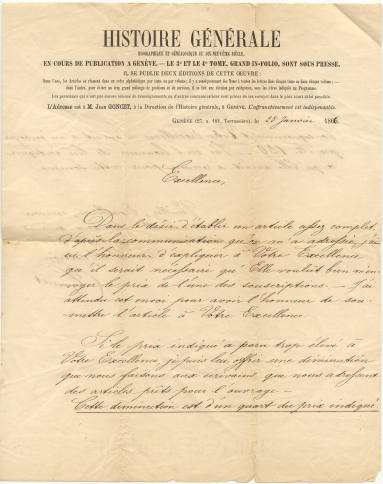 HISTOIRE GÉNÉRALE
BIOGRAPHIQUE ET GÉNÉALOGIQUE DU DIX-NEUVIÈME SIÈCLE,
EN COURS DE PUBLICATION A GENÈVE. — LE 3e ET LE 4e TOME, GRAND IN-FOLIO, SONT SOUS PRESSE.
IL SE PUBLIE DEUX ÉDITIONS DE CETTE ŒUVRE :
L'Adresse est à M. Jean GONCET, à la Direction de l'Histoire générale, à Genève. L'affranchissement est indispensable.
GENÈVE (27, a. 107, Terrassière), le 25 Janvier 1866
Excellence,
Dans le désir d'établir un article assez complet,
d'après la communication qu'on m'a adressée, j'ai
eu l'honneur d'expliquer à Votre Excellence
qu'il serait nécessaire qu'Elle voulût bien m'en-
voyer le prix de l'une des souscriptions. — J'ai
attendu cet envoi pour avoir l'honneur de sou-
mettre l'article à Votre Excellence.
Si le prix indiqué a paru trop élevé à
Votre Excellence, je puis lui offrir une diminution
que nous faisons aux écrivains qui nous adressent
des articles prêts pour l'ouvrage. —
Cette diminution est d'un quart du prix indiqué.